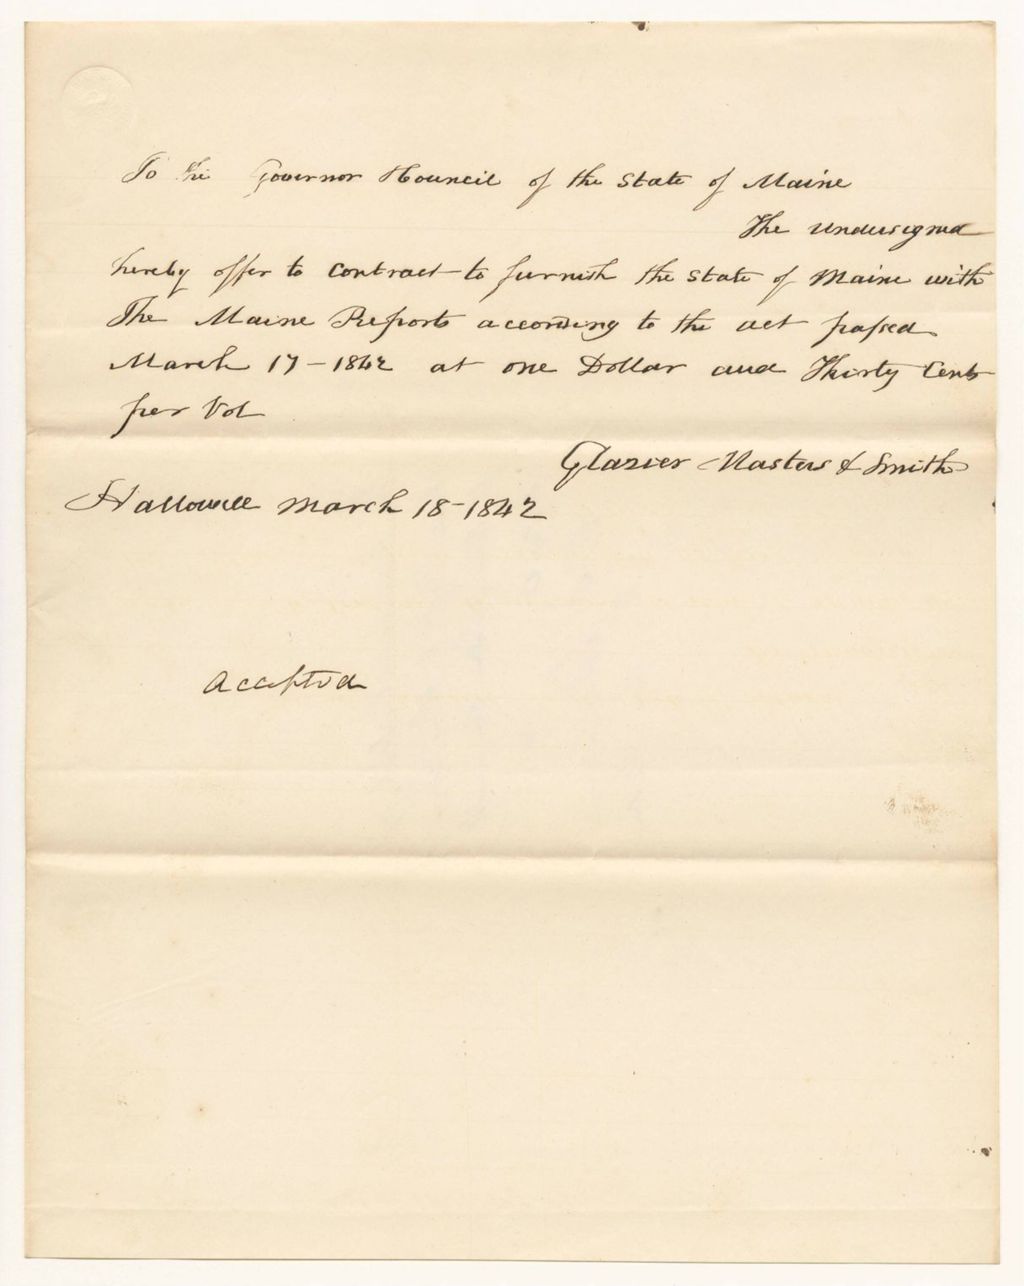 To the Governor & Council of the State of Maine
The undersigned
hereby offer to contract to furnish the State of Maine with
The Maine Reports according to the act passed
March 17 - 1842 at one Dollar and Thirty Cents
per Vol
Glazier Masters & Smith
Hallowell March 18 - 1842
Accepted